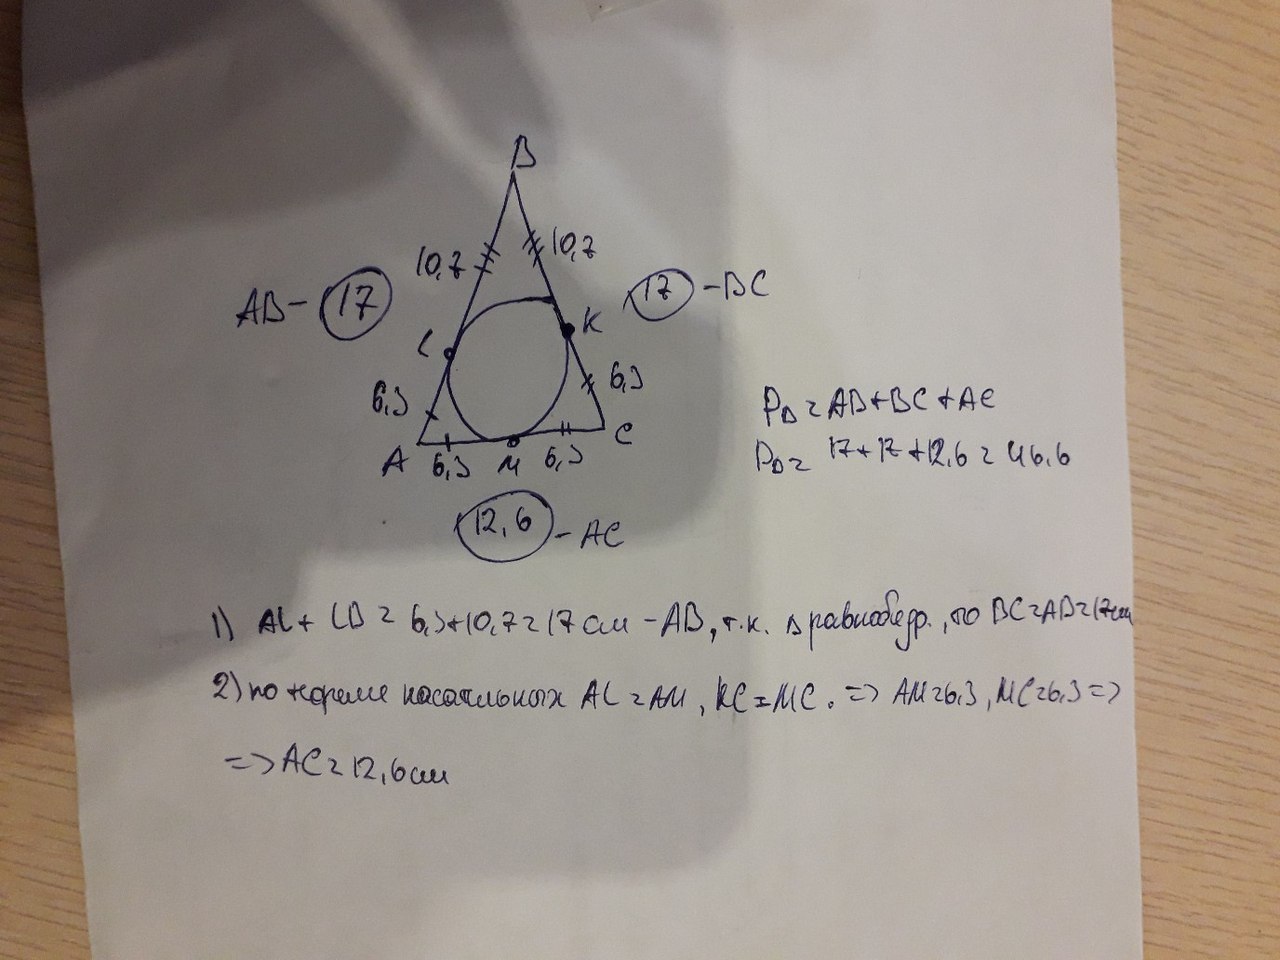 B
10,7
10,7
AB - 17
17 - BC
L
K
6,3
6,3
A
6,3
M
6,3
C
12,6 - AC
P∆ = AB + BC + AC
P∆ = 17 + 17 + 12,6 = 46,6
1) AL + LB = 6,3 + 10,7 = 17 см - AB, т.к. ∆ равнобедр., то BC = AB = 17 см
2) по теореме касательных AL = AM, KC = MC. => AM = 6,3, MC = 6,3 =>
=> AC = 12,6 см